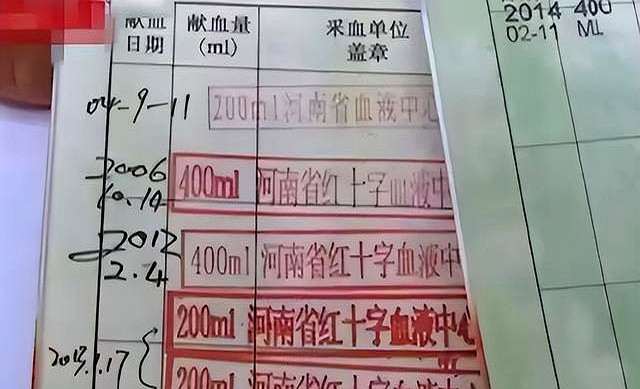 献血 献血量 采血单位
日期 (ml) 盖章
04-9-11 200ml 河南省血液中心
2006
10.14 400ml 河南省红十字血液中
2012
2.4 400ml 河南省红十字血液中
200ml 河南省红十字血液中心
200ml 河南省红十字血液中心
2014 400
02-11 ML